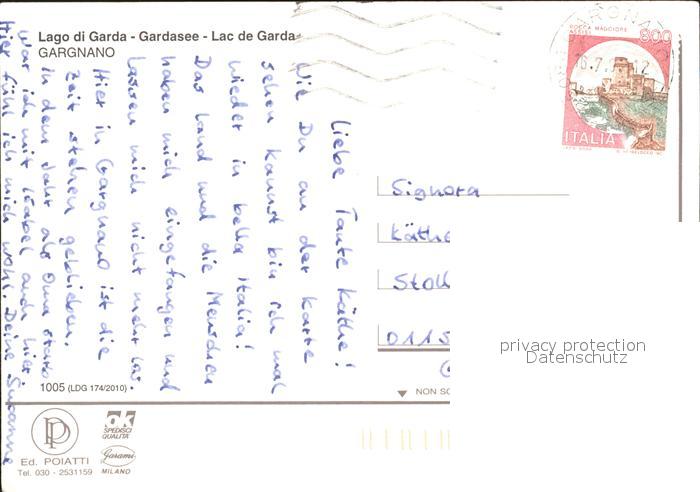 Lago di Garda - Gardasee - Lac de Garda
GARGNANO
Liebe Tante Käthe!
Wie Du an der Karte
sehen kannst bin ich mal
wieder in bella Italia!
Das Land und die Menschen
haben mich eingefangen und
lassen mich nicht mehr los.
Hier in Gargnano ist die
Zeit stehen geblieben.
In dem Jahr als Oma starb
war ich mit Isabel auch hier.
Hier fühl ich mich wohl. Deine Susanne
ROCCA MAGGIORE
ASSISI
800
ITALIA
GARGNANO
16.7.
12
Signora
Käthe
Stoll
0115
privacy protection
Datenschutz
1005 (LDG 174/2010)
NON SC
PP
Ed. POIATTI
Tel. 030 - 2531159
OK
SPEDISCI
QUALITÀ
Garami
MILANO